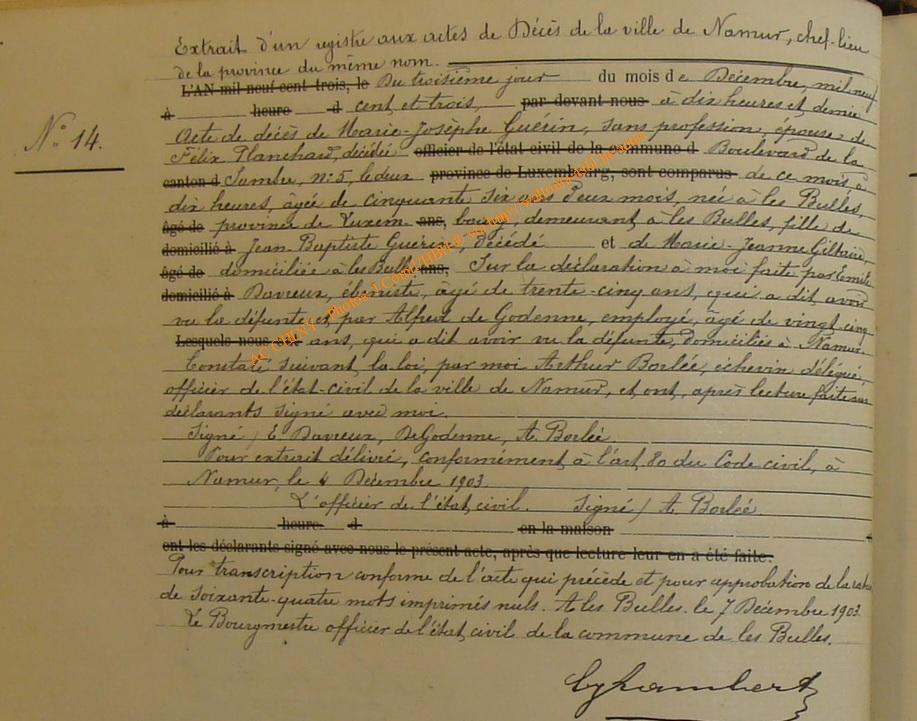 Extrait d'un registre aux actes de Décès de la ville de Namur, chef-lieu
de la province du même nom.
L'AN mil neuf cent trois, le Du troisième jour du mois de Décembre, mil neuf
à heure d cent et trois, par devant nous à dix heures et demie
N° 14.
Acte de décès de Marie-Josèphe Guérin, sans profession, épouse de
Félix Planchard, décédée officier de l'état civil de la commune d Boulevard de la
canton d Sambre, n: 5, le deux province de Luxembourg, sont comparus de ce mois, à
dix heures, agée de cinquante six ans deux mois, née à les Bulles,
âgé de province de Luxem ans, bourg, demeurant à les Bulles, fille de
domicilié à Jean-Baptiste Guérin décédé et de Marie-Jeanne
âgé de domiciliée à les Bulles ans, Sur la déclaration à moi faite par Emile
domicilié à Davreux, ébeniste, âgé de trente-cinq ans, qui a dit avoir
vu la défunte et par de Godenne, employé, âgé de vingt-cinq
Lesquels nous ans, qui a dit avoir vu la défunte, domiciliés à Namur.
Constaté suivant la loi, par moi Arthur Borlée, échevin délégué,
officier de l'état-civil de la ville de Namur, et ont, après lecture faite aux
déclarants signé avec moi.
Signé / E. Davreux, De Godenne, A. Borlée.
Pour extrait délivré, conformément à l'art. 80 du Code civil, à
Namur, le 4 Décembre 1903.
L'officier de l'état civil. Signé / A. Borlée
à heure d en la maison
ont les déclarants signé avec nous le présent acte, après que lecture leur en a été faite.
Pour transcription conforme de l'acte qui précède et pour approbation de la
de soixante-quatre mots imprimés nuls. A les Bulles. le 7 Décembre 1903.
Le Bourgmestre officier de l'état civil de la commune de les Bulles.
Lambert